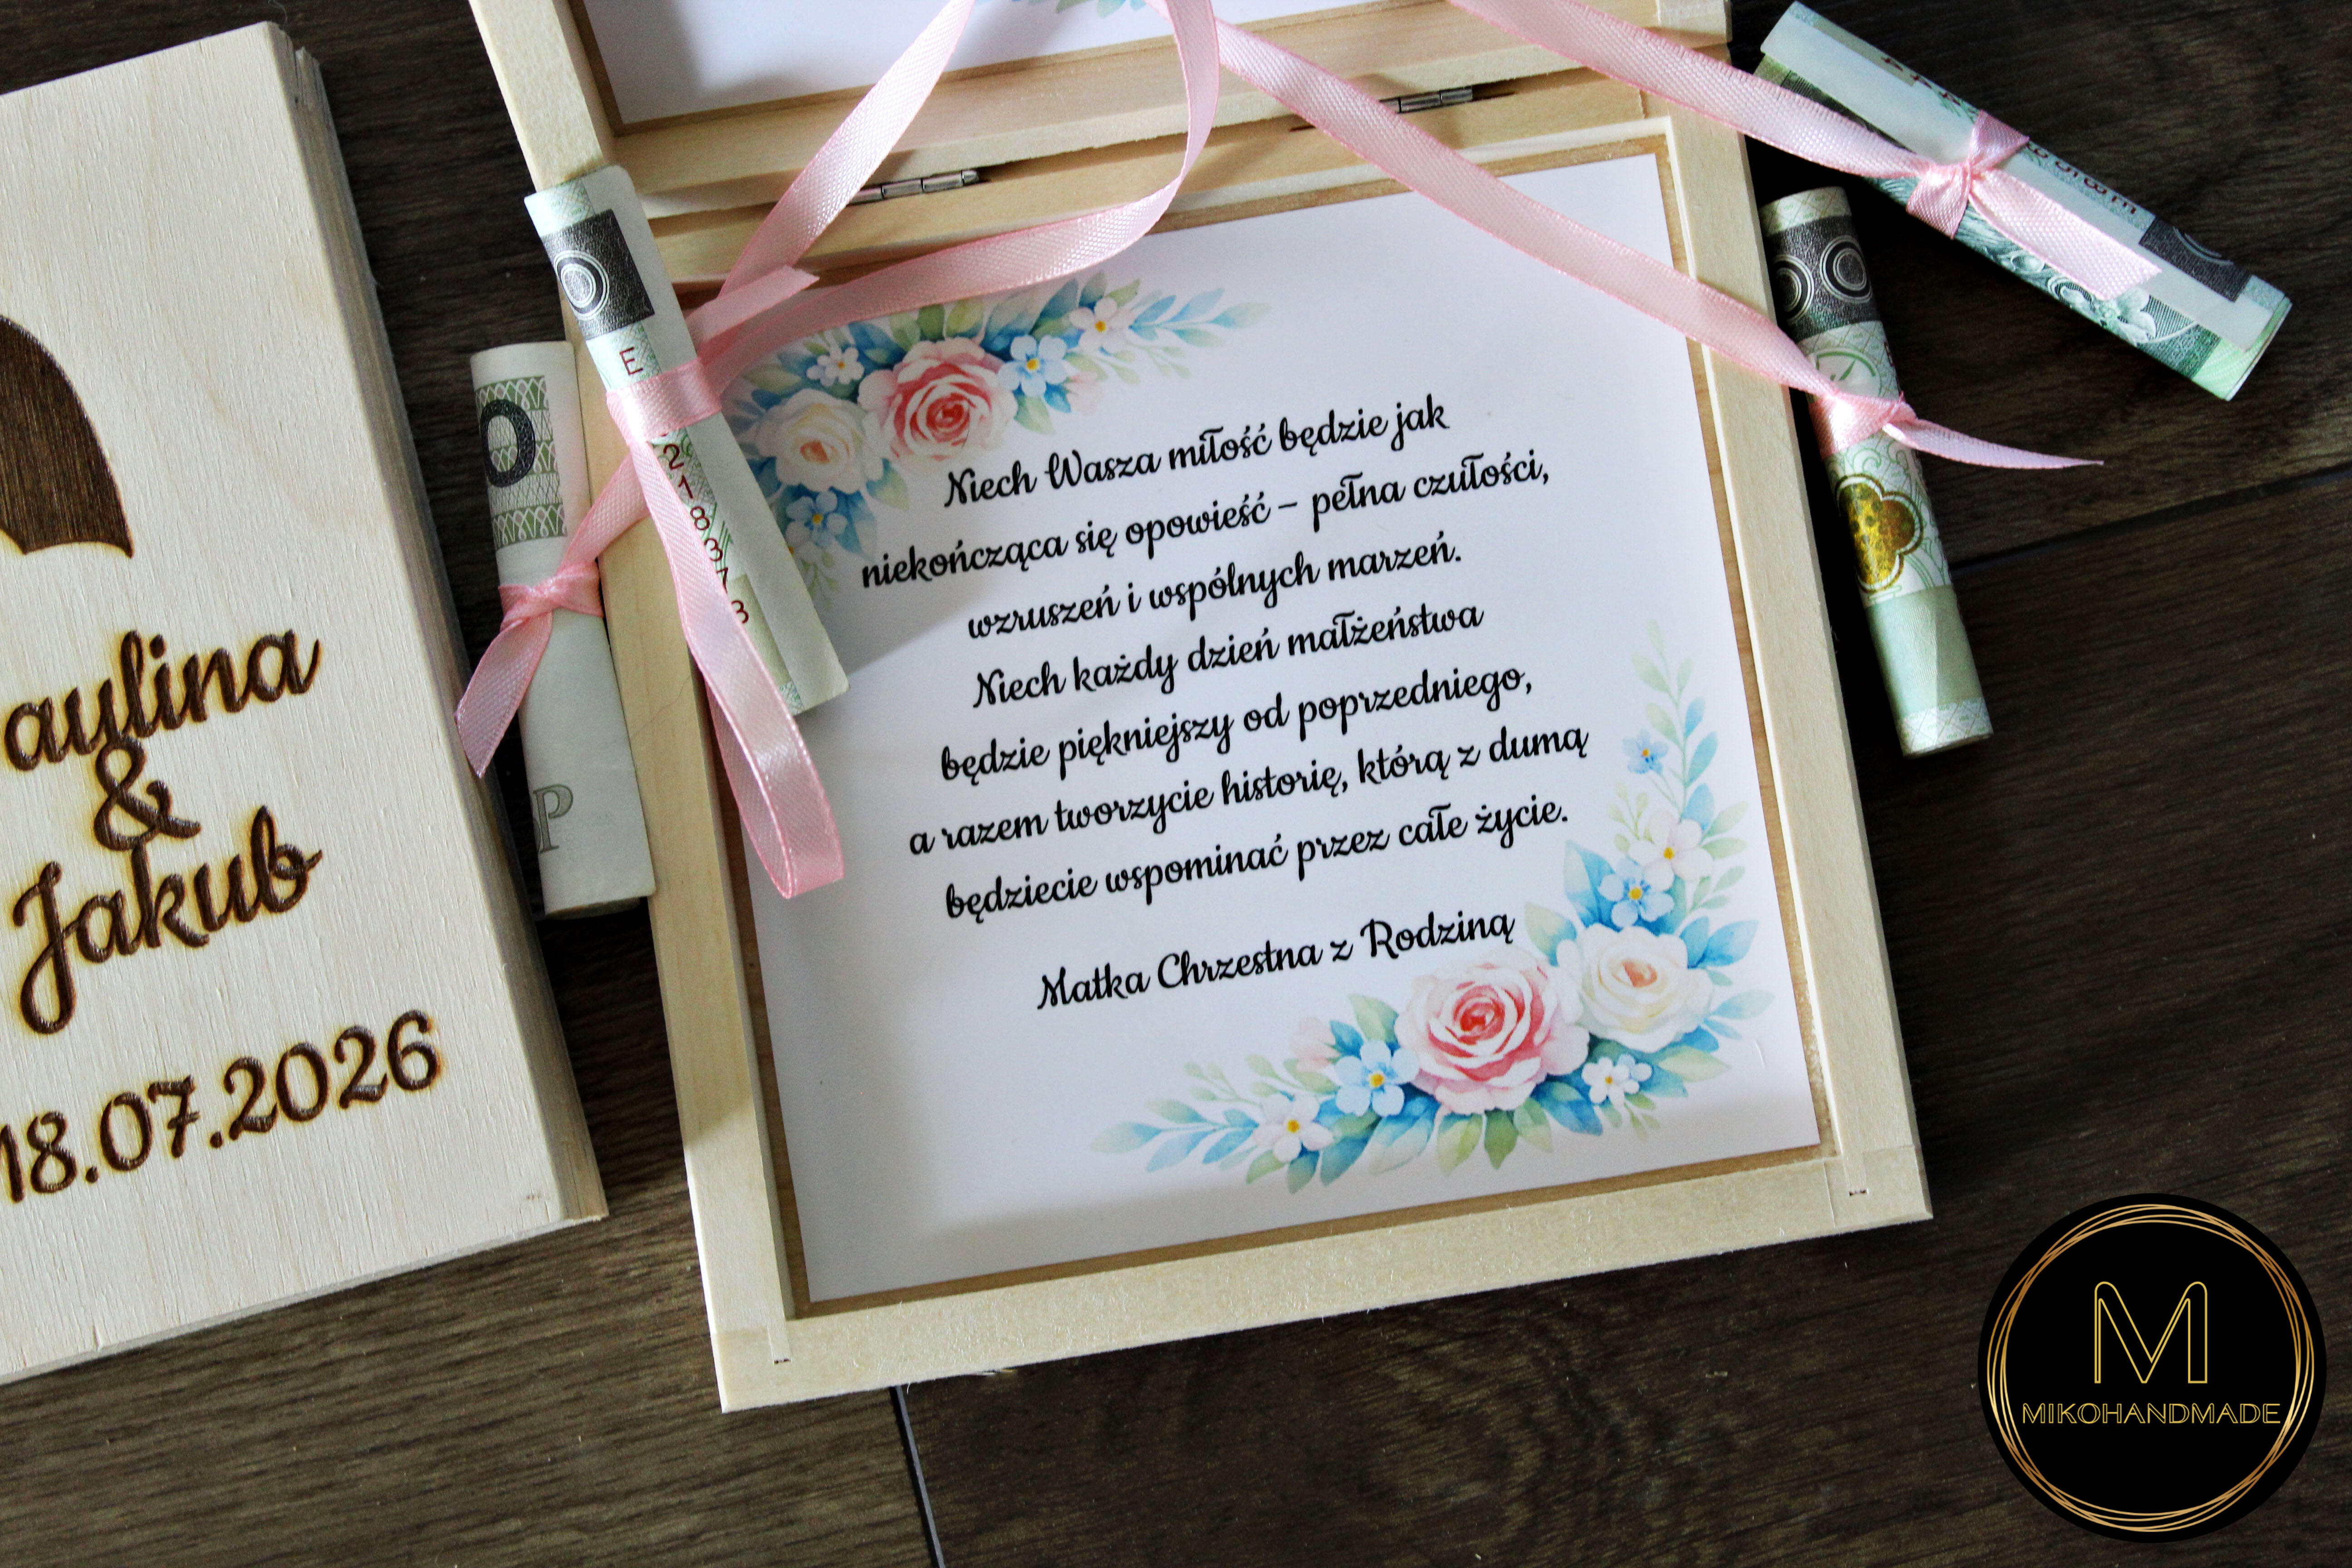 aulina
&
Jakub
18.07.2026
Niech Wasza miłość będzie jak
niekończąca się opowieść – pełna czułości,
wzruszeń i wspólnych marzeń.
Niech każdy dzień małżeństwa
będzie piękniejszy od poprzedniego,
a razem tworzycie historię, którą z dumą
będziecie wspominać przez całe życie.
Matka Chrzestna z Rodziną
M
MIKOHANDMADE